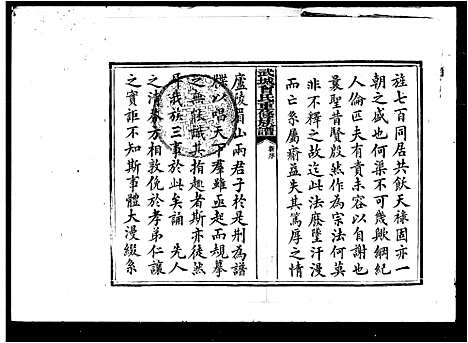 旌七百同居共飲天祿固亦一
朝之盛也何渠不可幾歟綱紀
人倫匹夫有責未容以自謝也
曩聖昔賢殷然作為宗法何莫
非不釋之故迄此法廢墮汗漫
而亡系屬瘉益失其篤厚之情
武城曾氏重修族譜
舊序
廬陵眉山兩君子於是刱為譜
牒以唱天下羣雖亟起而規摹
之無能識其指趣者斯亦徒然
耳我族三重於此矣誦 先人
之清春方相敦侊於孝弟仁讓
之實詎不知斯事體大漫綴系